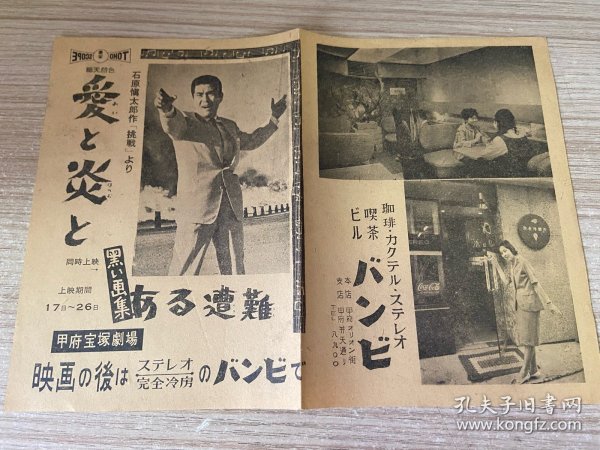 TOHO SCOPE
総天然色
石原慎太郎作「挑戦」より
愛と炎と
同時上映
黒い画集
ある遭難
上映期間
17日〜26日
甲府宝塚劇場
映画の後は ステレオ 完全冷房 のバンビで
珈琲・カクテル・ステレオ
喫茶
ビル
バンビ
本店 甲府オリオン街
支店 甲府弁天通り
Coca-Cola
孔夫子旧书网
www.kongfz.com